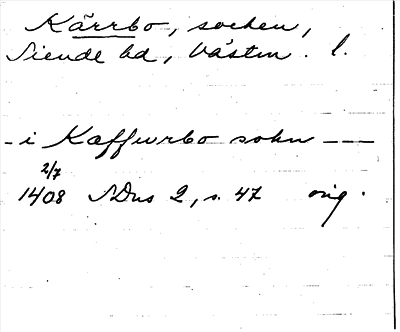 Kärrbo, socken,
Siende hd, Västm. l.
- i Kaffwrbo sokn - - -
2/7
1408 SDns 2, s. 47 orig.